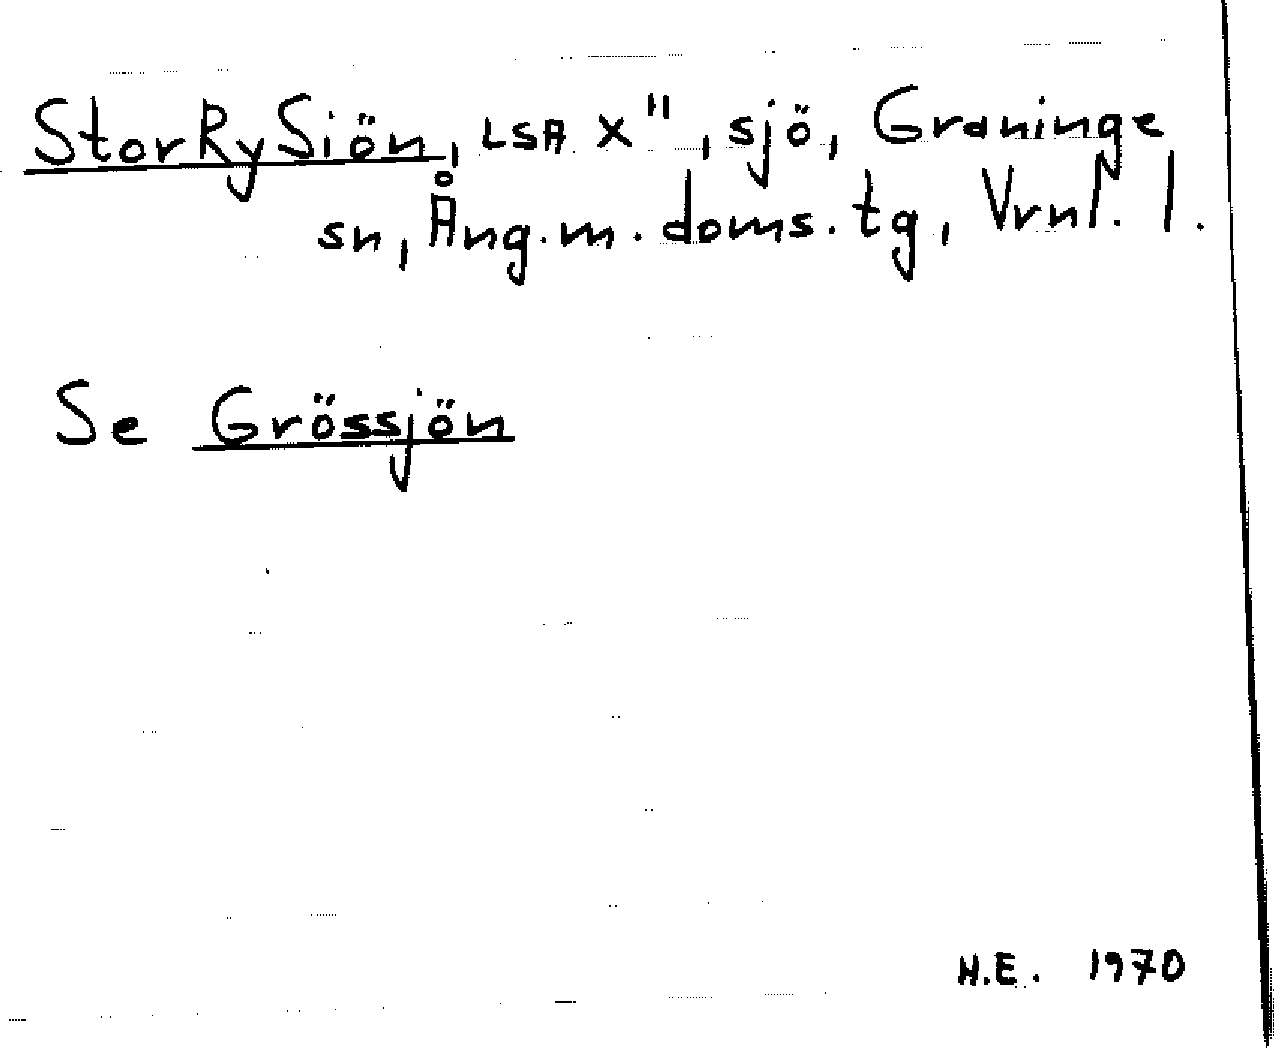 StorRySiön, LSA X", sjö, Graninge
sn, Ång.m. doms. tg, Vrnl. l.
Se Grössjön
H.E. 1970